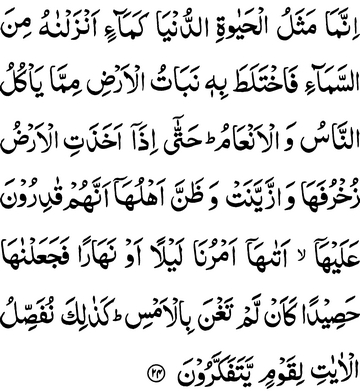 اِنَّمَا مَثَلُ الْحَيٰوةِ الدُّنْيَا كَمَآءٍ اَنْزَلْنٰهُ مِنَ
السَّمَآءِ فَاخْتَلَطَ بِهٖ نَبَاتُ الْاَرْضِ مِمَّا يَاْكُلُ
النَّاسُ وَ الْاَنْعَامُ ؕ حَتّٰۤى اِذَاۤ اَخَذَتِ الْاَرْضُ
زُخْرُفَهَا وَ ازَّيَّنَتْ وَ ظَنَّ اَهْلُهَاۤ اَنَّهُمْ قٰدِرُوْنَ
عَلَيْهَاۤ ۙ اَتٰىهَاۤ اَمْرُنَا لَيْلًا اَوْ نَهَارًا فَجَعَلْنٰهَا
حَصِيْدًا كَاَنْ لَّمْ تَغْنَ بِالْاَمْسِ ؕ كَذٰلِكَ نُفَصِّلُ
الْاٰيٰتِ لِقَوْمٍ يَّتَفَكَّرُوْنَ ﴿۲۴﴾